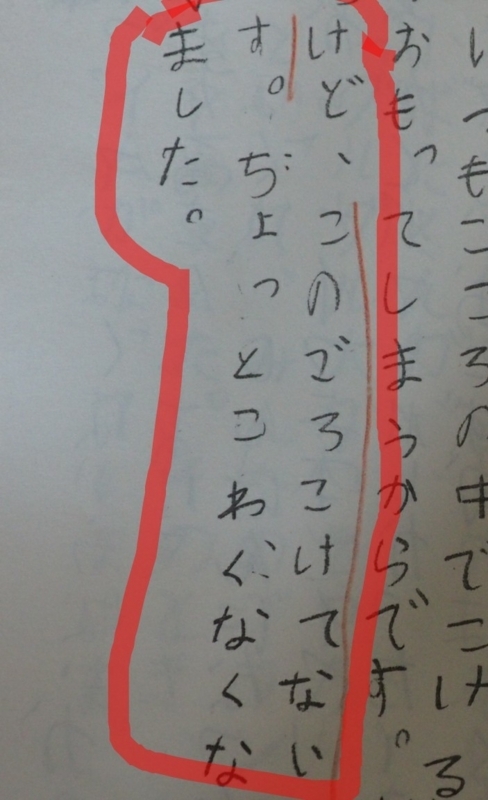 いつもこころの中でこける
おもってしまうからです。
けど、このごろこけてない
す。ぢょっとこわぐなくな
ました。